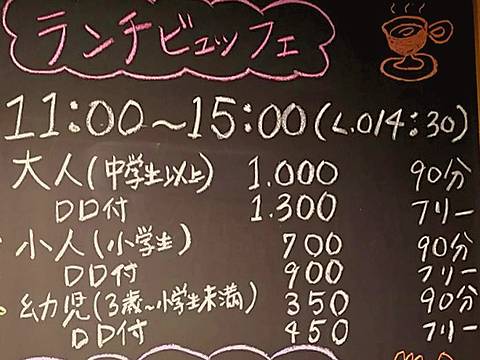 ランチビュッフェ
11:00~15:00(L.O14:30)
大人(中学生以上) 1.000 90分
DD付 1.300 フリー
小人(小学生) 700 90分
DD付 900 フリー
幼児(3歳~小学生未満) 350 90分
DD付 450 フリー